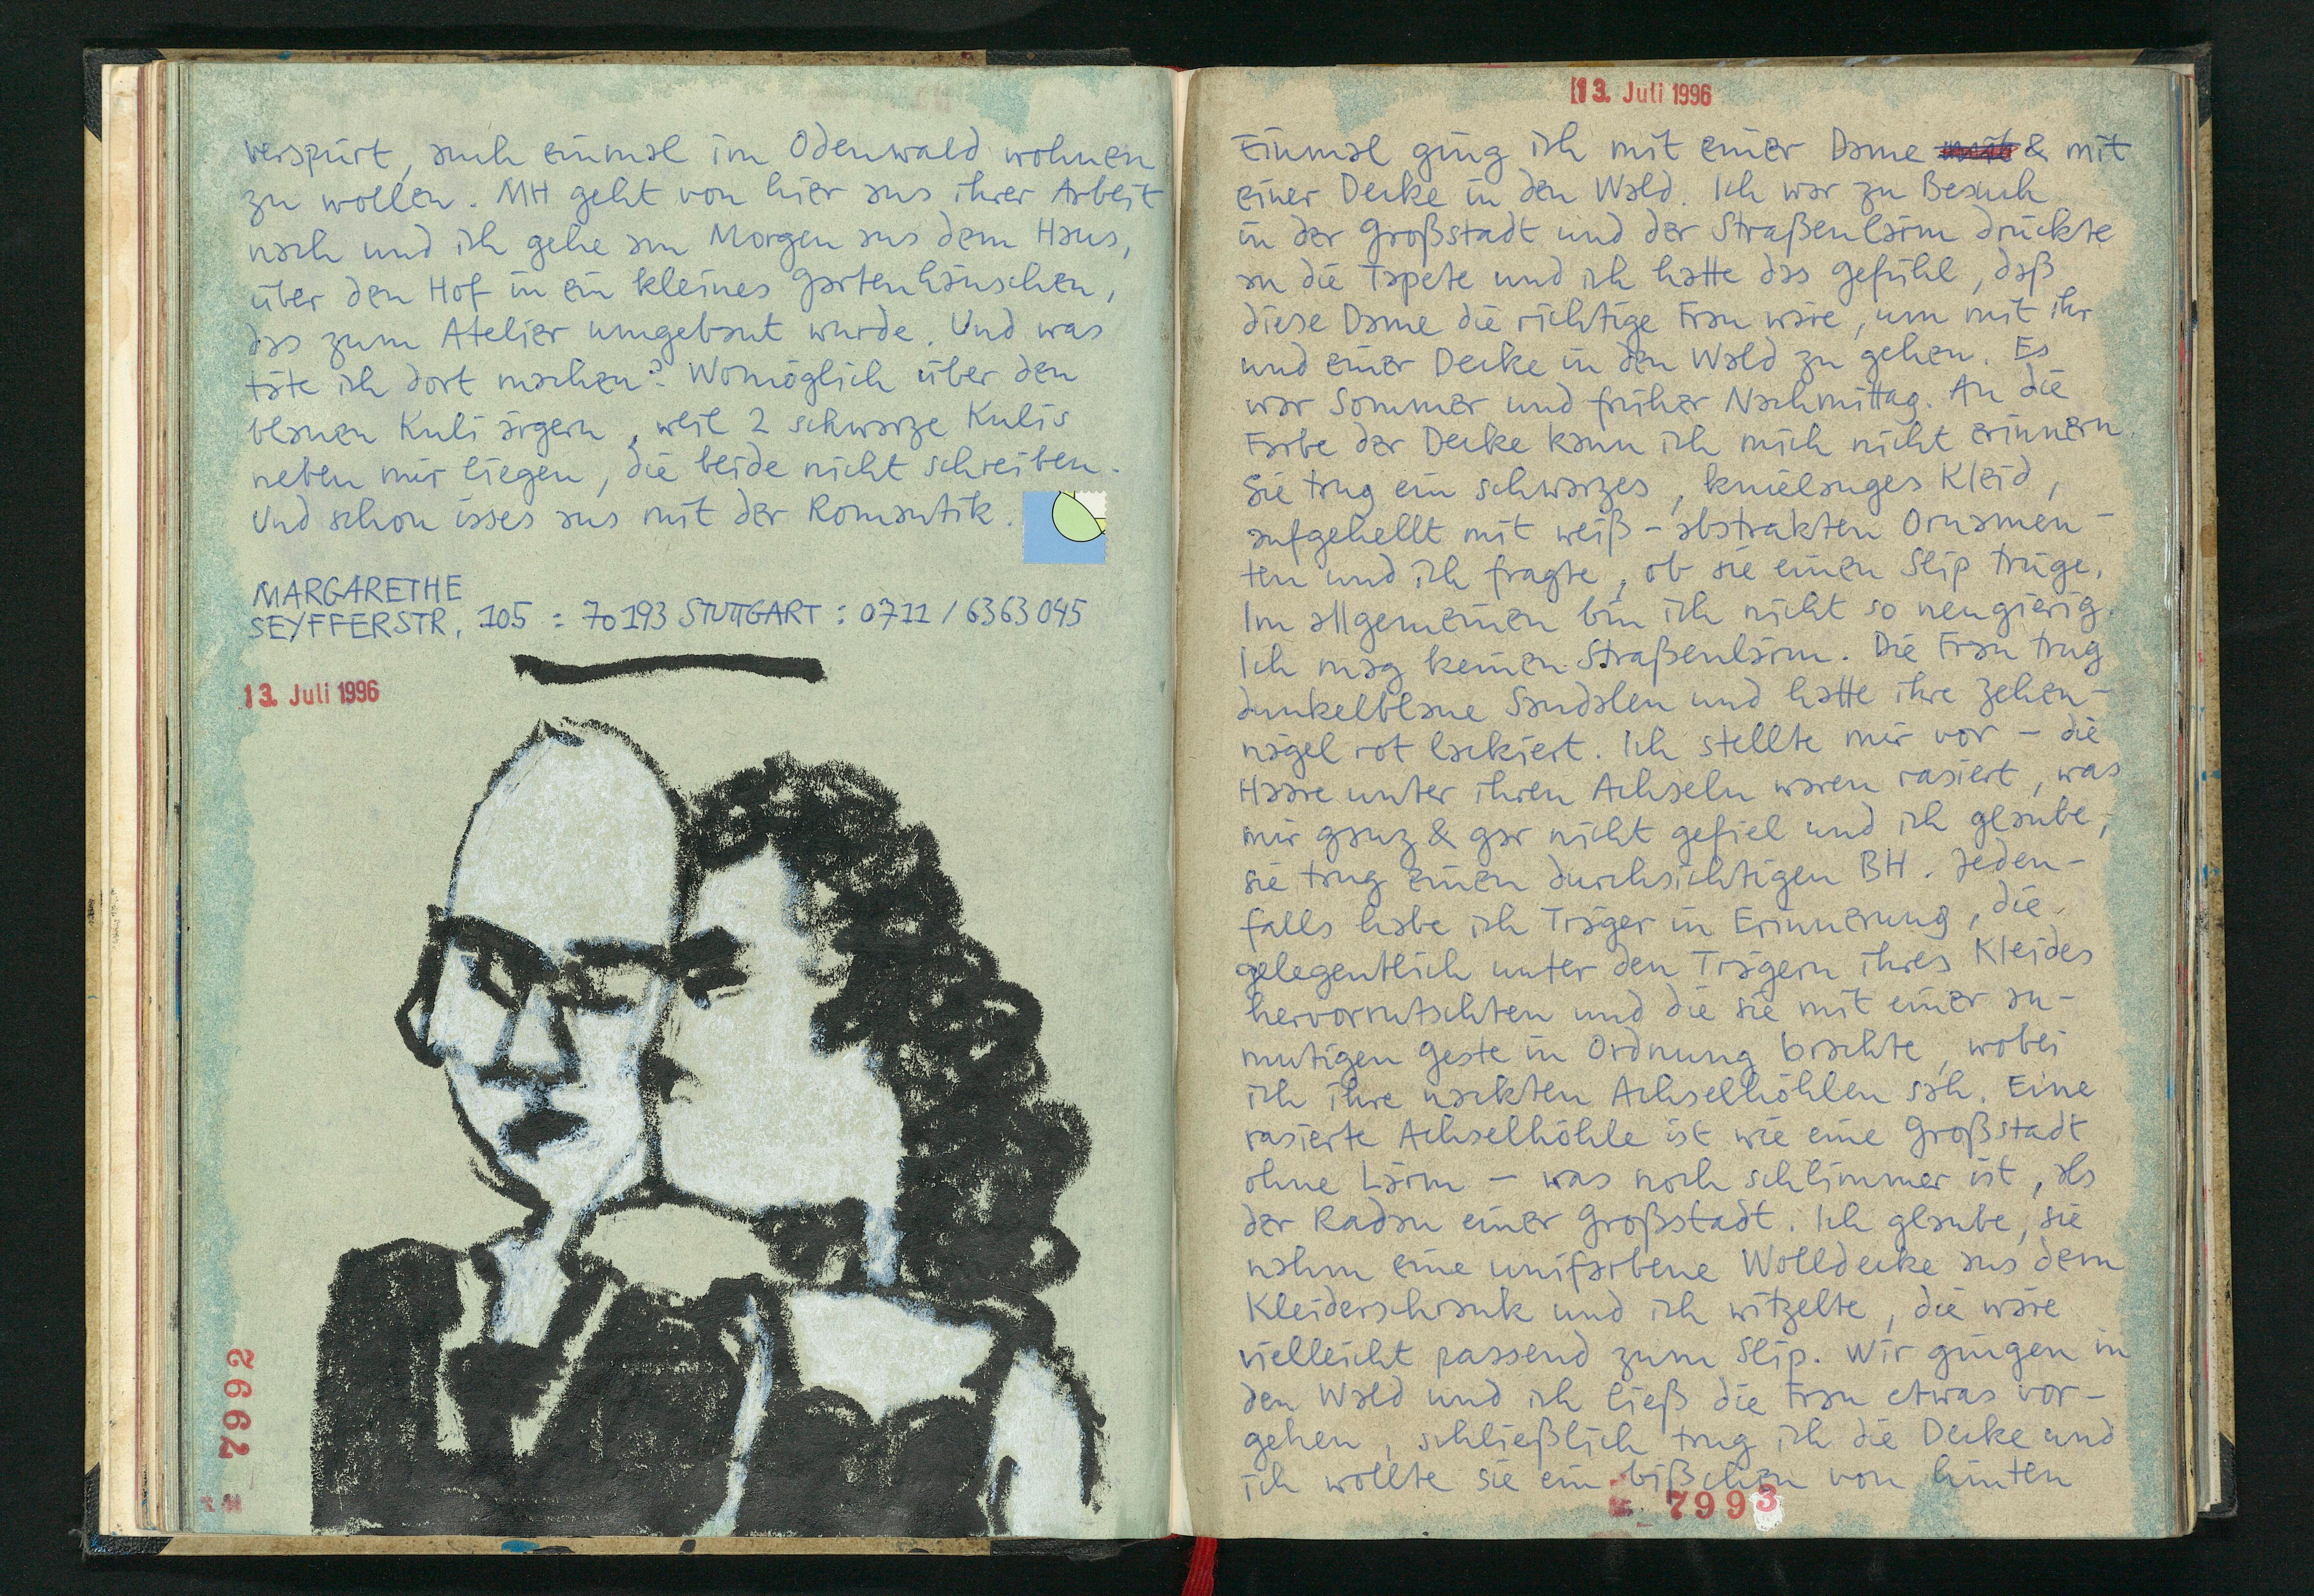 verspürt, auch einmal im Odenwald wohnen
zu wollen. MH geht von hier aus ihrer Arbeit
nach und ich gehe am Morgen aus dem Haus,
über den Hof in ein kleines Gartenhäuschen,
das zum Atelier umgebaut wurde. Und was
täte ich dort machen? Womöglich über den
blauen Kuli ärgern, weil 2 schwarze Kulis
neben mir liegen, die beide nicht schreiben.
Und schon isses aus mit der Romantik.
MARGARETHE
SEYFFERSTR. 105 : 70193 STUTTGART : 0711 / 6363045
13. Juli 1996
7992
13. Juli 1996
Einmal ging ich mit einer Dame mit & mit
einer Decke in den Wald. Ich war zu Besuch
in der Großstadt und der Straßenlärm drückte
an die Tapete und ich hatte das Gefühl, daß
diese Dame die richtige Frau wäre, um mit ihr
und einer Decke in den Wald zu gehen. Es
war Sommer und früher Nachmittag. An die
Farbe der Decke kann ich mich nicht erinnern.
Sie trug ein schwarzes, knielanges Kleid,
aufgehellt mit weiß-abstrakten Ornamen-
ten und ich fragte, ob sie einen Slip trüge.
Im allgemeinen bin ich nicht so neugierig.
Ich mag keinen Straßenlärm. Die Frau trug
dunkelblaue Sandalen und hatte ihre Zehen-
nägel rot lackiert. Ich stellte mir vor - die
Haare unter ihren Achseln waren rasiert, was
mir ganz & gar nicht gefiel und ich glaube,
sie trug einen durchsichtigen BH. Jeden-
falls habe ich Träger in Erinnerung, die
gelegentlich unter den Trägern ihres Kleides
hervorrutschten und die sie mit einer an-
mutigen Geste in Ordnung brachte, wobei
ich ihre nackten Achselhöhlen sah. Eine
rasierte Achselhöhle ist wie eine Großstadt
ohne Lärm - was noch schlimmer ist, als
der Radau einer Großstadt. Ich glaube, sie
nahm eine unifarbene Wolldecke aus dem
Kleiderschrank und ich witzelte, die wäre
vielleicht passend zum Slip. Wir gingen in
den Wald und ich ließ die Frau etwas vor-
gehen, schließlich trug ich die Decke und
ich wollte sie ein bißchen von hinten
7993